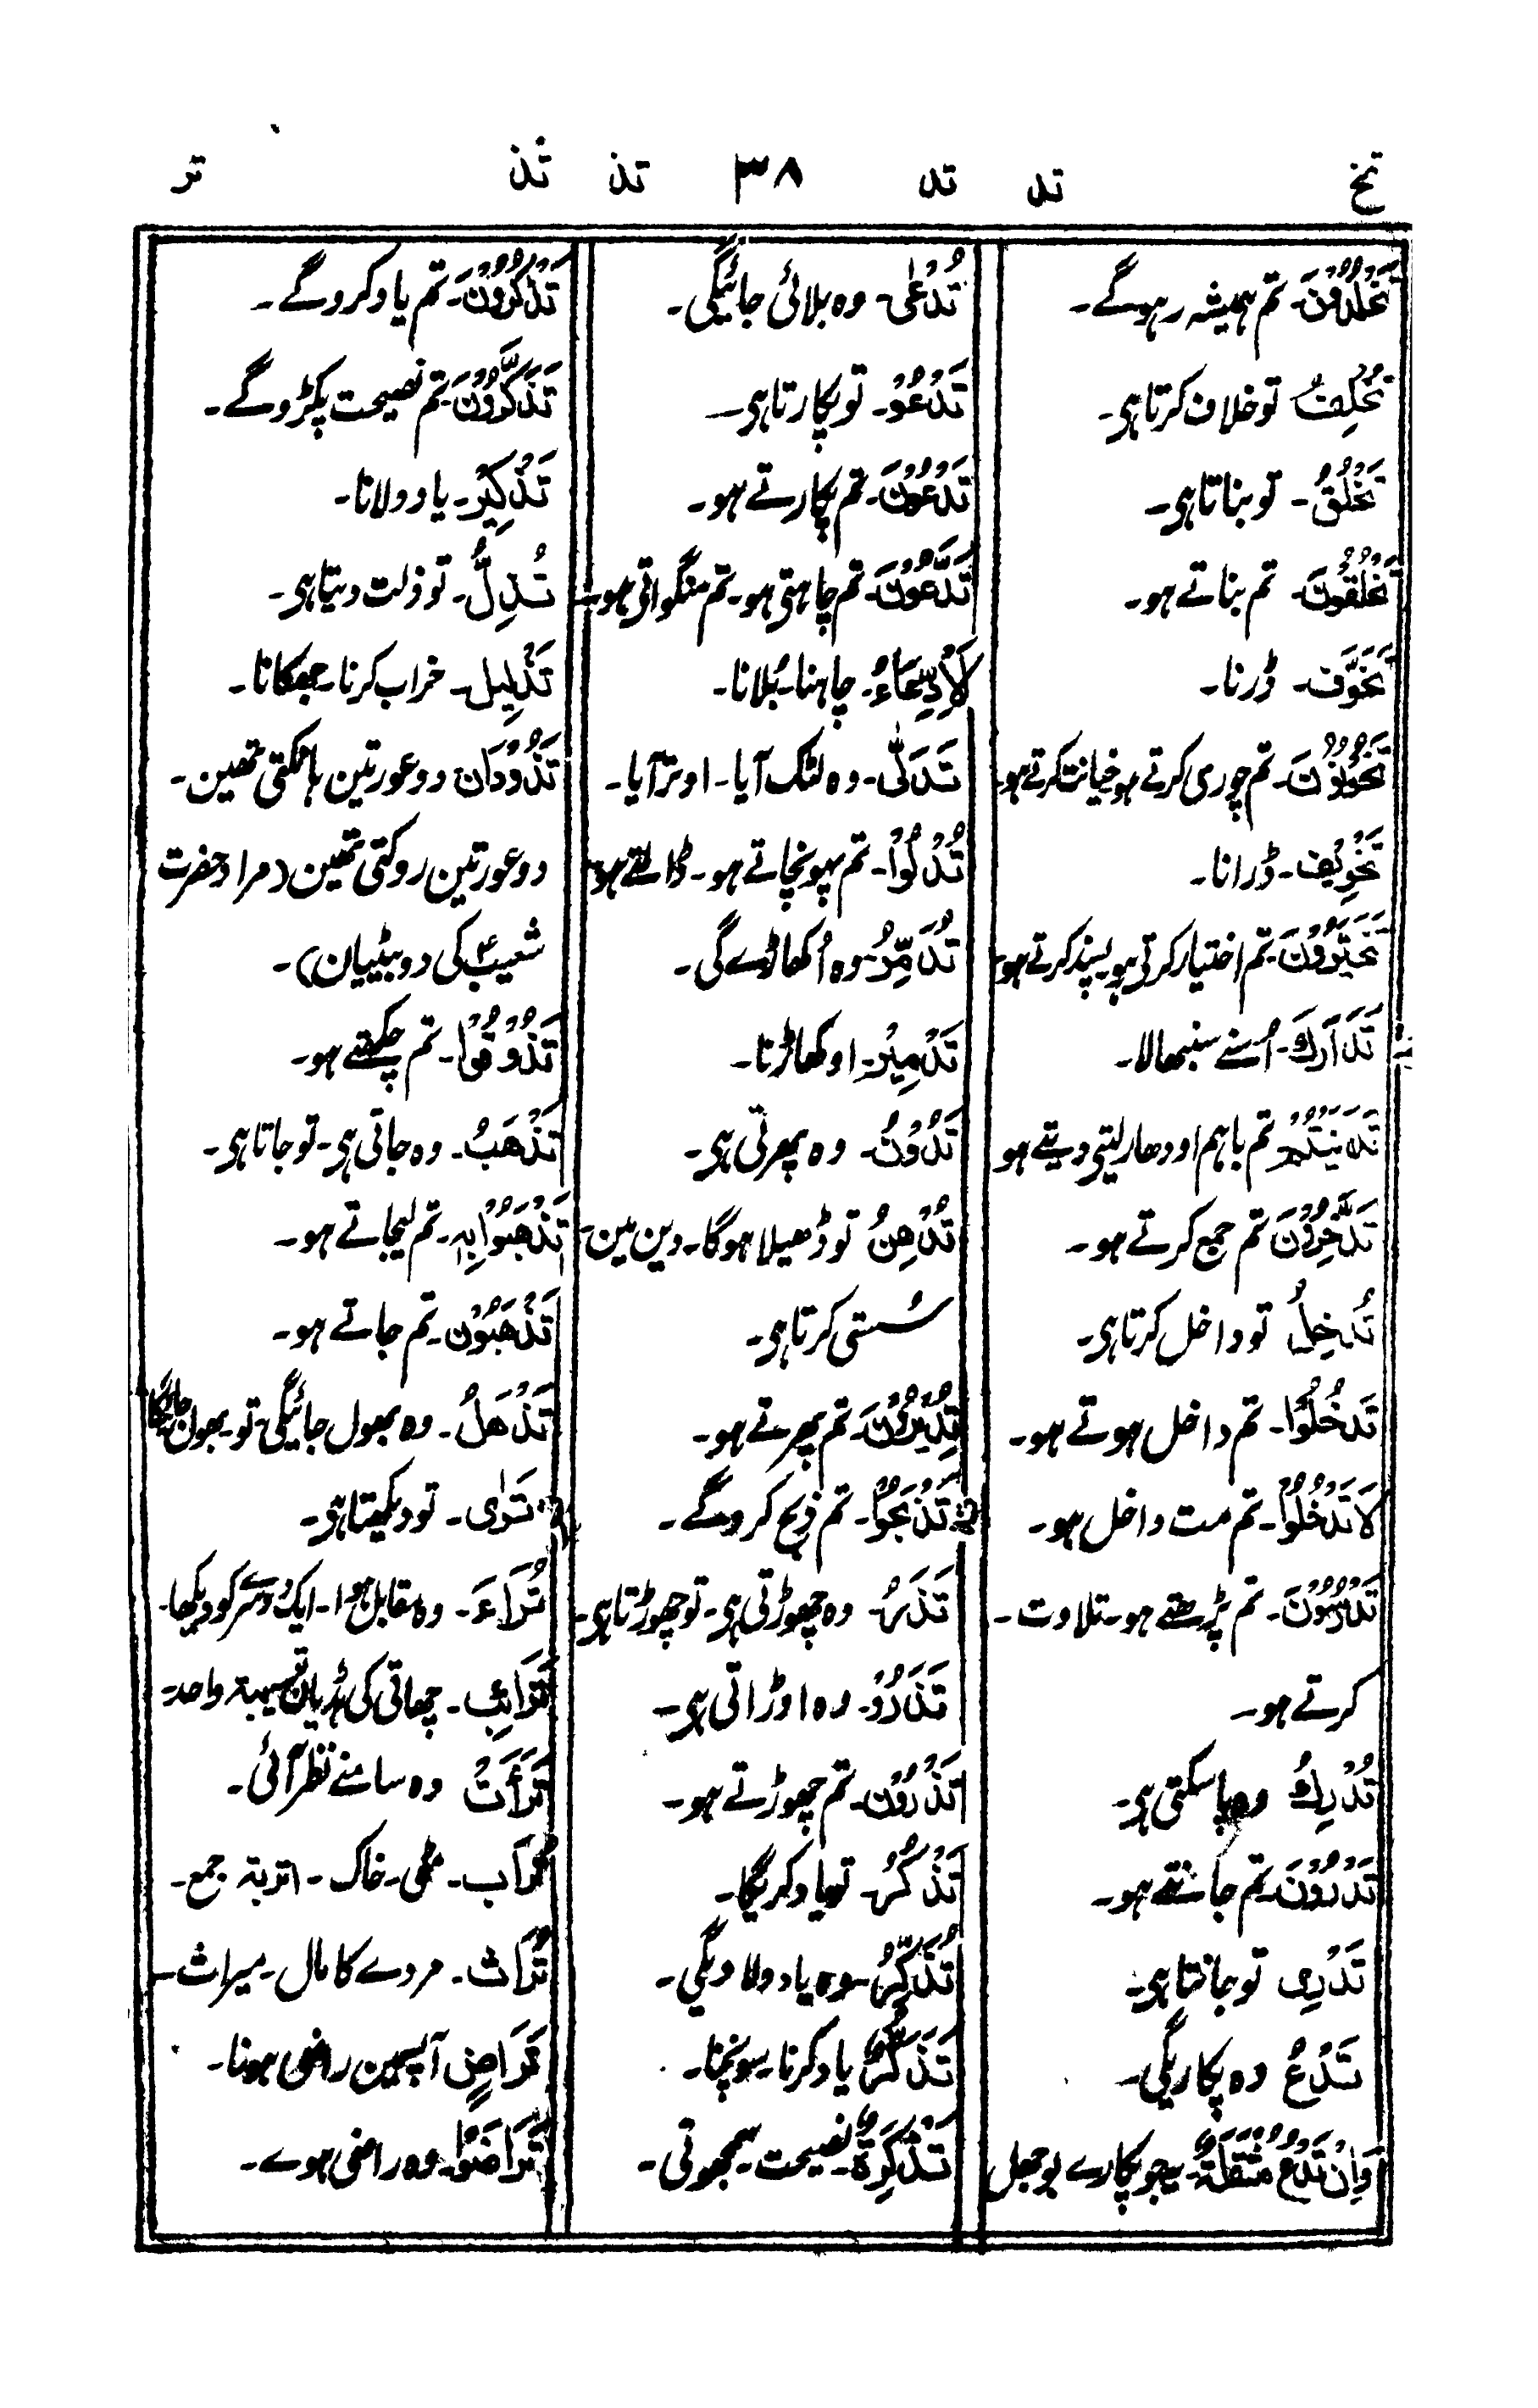 تخ تد تد ۳۸ تذ تُذ تر
تَخْلُدُوْنَ۔ تم ہمیشہ رہوگے۔
تُخْلِفُ تو خلاف کرتا ہی۔
تَخْلُقُ۔ تو بناتا ہی۔
تَخْلُقُوْنَ۔ تم بناتے ہو۔
تَخَوُّف۔ ڈرنا۔
تَخُوْنُوْنَ۔ تم چوری کرتے ہو خیانت کرتے ہو
تَخْوِیْف۔ ڈرانا۔
تَخَیَّرُوْنَ۔ تم اختیار کرتی ہو پسند کرتے ہو۔
تَدَارَكَ۔ اُسنے سنبھالا۔
تَدَایَنْتُمْ تم باہم اودھار لیتی دیتے ہو
تَدَّخِرُوْنَ تم جمع کرتے ہو۔
تُدْخِلُ تو داخل کرتا ہی۔
تَدْخُلُوْا۔ تم داخل ہوتے ہو۔
لَا تَدْخُلُوْا۔ تم مت داخل ہو۔
تَدْرُسُوْنَ۔ تم پڑھتے ہو۔ تلاوت۔
کرتے ہو۔
تُدْرِكُ وہ پا سکتی ہی۔
تَدْرُوْنَ۔ تم جانتے ہو۔
تَدْرِی تو جانتا ہی۔
تَدْعُ وہ پکاریگی۔
وَاِنْ تَدْعُ مُثْقَلَةٌ۔ جو پکارے بوجھل
تُدْعٰی۔ وہ بلائی جائیگی۔
تَدْعُوْ۔ تو پکارتا ہی۔
تَدْعُوْنَ۔ تم پکارتے ہو۔
تَدَّعُوْنَ۔ تم چاہتی ہو۔ تم منگواتی ہو۔
لِاِدِّعَاءُ۔ چاہنا۔ بُلانا۔
تَدَلّٰی۔ وہ لٹک آیا۔ اوتر آیا۔
تُدْلُوْا۔ تم پہونچاتے ہو۔ ڈالتے ہو۔
تُدَمِّرُ۔ وہ اُکھاڑے گی۔
تَدْمِیْرُ۔ اوکھاڑنا۔
تَدُوْرُ۔ وہ پھرتی ہی۔
تُدْهِنُ تو ڈھیلا ہوگا۔ دین مین۔
سُستی کرتا ہی۔
تُدِیْرُوْنَ۔ تم پھرتے ہو۔
تَذْبَحُوْا۔ تم ذبح کروگے۔
تَذَرُ۔ وہ چھوڑتی ہی۔ تو چھوڑتا ہی۔
تَذَرُوْ۔ وہ اوڑاتی ہی۔
تَذَرُوْنَ۔ تم چھوڑتے ہو۔
تَذْكُرُ۔ تو یاد کریگا۔
تُذَكِّرُ۔ وہ یاد دلاویگی۔
تَذَكُّرُ یاد کرنا۔ سونچنا۔
تَذْكِرَةٌ۔ نصیحت۔ سمجھوتی۔
تَذْكُرُوْنَ۔ تم یاد کروگے۔
تَذَكَّرُوْنَ۔ تم نصیحت پکڑوگے۔
تَذْكِیْر۔ یاد دلانا۔
تُذِلُّ۔ تو ذلت دیتا ہی۔
تَذْلِیل۔ خراب کرنا۔ جھکانا۔
تَذُوْدَانِ دو عورتین ہانکتی تھین۔
دو عورتین روکتی تھین (مراد حضرت
شعیبؑ کی دو بیٹیان)۔
تَذُوْقُوْا۔ تم چکھتے ہو۔
تَذْهَبُ۔ وہ جاتی ہی۔ تو جاتا ہی۔
تَذْهَبُوْا بِهٖ۔ تم لیجاتے ہو۔
تَذْهَبُوْن۔ تم جاتے ہو۔
تَذْهَلُ۔ وہ بھول جائیگی۔ تو بھول جائیگا
تَرٰی۔ تو دیکھتا ہی۔
تَرَاءَ۔ وہ مقابل ہوا۔ ایک دوسرے کو دیکھا۔
تَرَائِب۔ چھاتی کی ہڈیان تریبة واحد
تَرَأَتْ وہ سامنے نظر آئی۔
تُرَاب۔ مٹی۔ خاک۔ اتربة جمع۔
تُرَاث۔ مردے کا مال۔ میراث۔
تَرَاضٍ آپسمین راضی ہونا۔
تَرَاضَوْا۔ وہ راضی ہوے۔